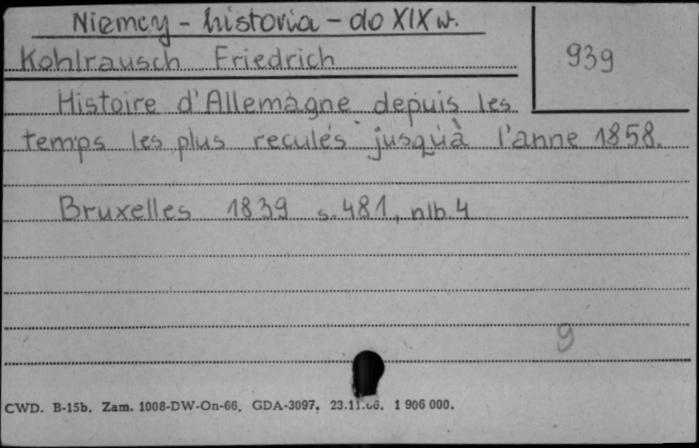 Niemcy - historia - do XIX w.
Kohlrausch Friedrich
939
Histoire d'Allemagne depuis les
temps les plus reculés jusqu'à l'anne 1858.
Bruxelles 1839 s. 481, nlb. 4
9
CWD. B-15b. Zam. 1008-DW-On-66. GDA-3097. 23.11.66. 1 906 000.